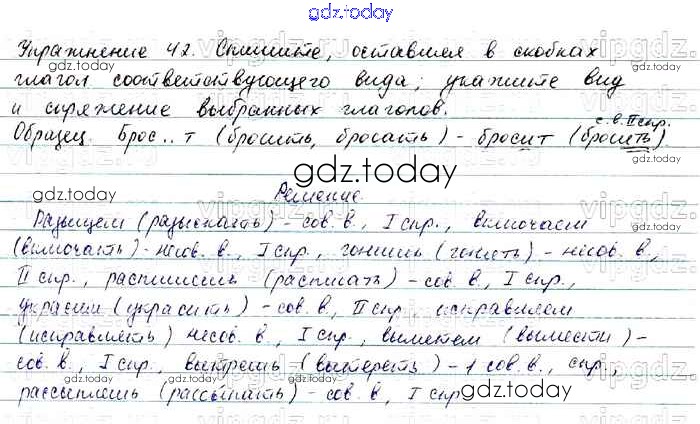 gdz.today
Упражнение 42. Спишите, оставляя в скобках
глагол соответствующего вида; укажите вид
и спряжение выбранных глаголов.
с.в. II спр.
Образец. Брос..т (бросить, бросать) - бросит (бросить)
gdz.today
Решение.
Разыщем (разыскать) - сов. в., I спр., включаем
(включать) - несов. в., I спр., гонишь (гонеть) - несов. в.,
II спр., распишешь (расписать) - сов. в., I спр.,
украсим (украсить) - сов. в., II спр., исправляем
(исправлять) несов. в., I спр., выметем (вымести) -
сов. в., I спр., вытрешь (вытереть) - 1 сов. в., спр.,
рассыплешь (рассыпать) - сов. в., I спр
gdz.today